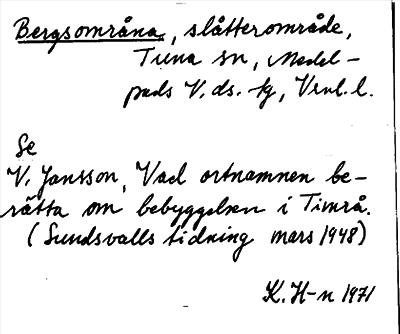 Bergsområna, slåtterområde,
Tuna sn, Medel-
pads V. ds. tg, Vrnl. l.
Se
V. Jansson, Vad ortnamnen be-
rätta om bebyggelsen i Timrå.
(Sundsvalls tidning mars 1948)
K. H-n 1971